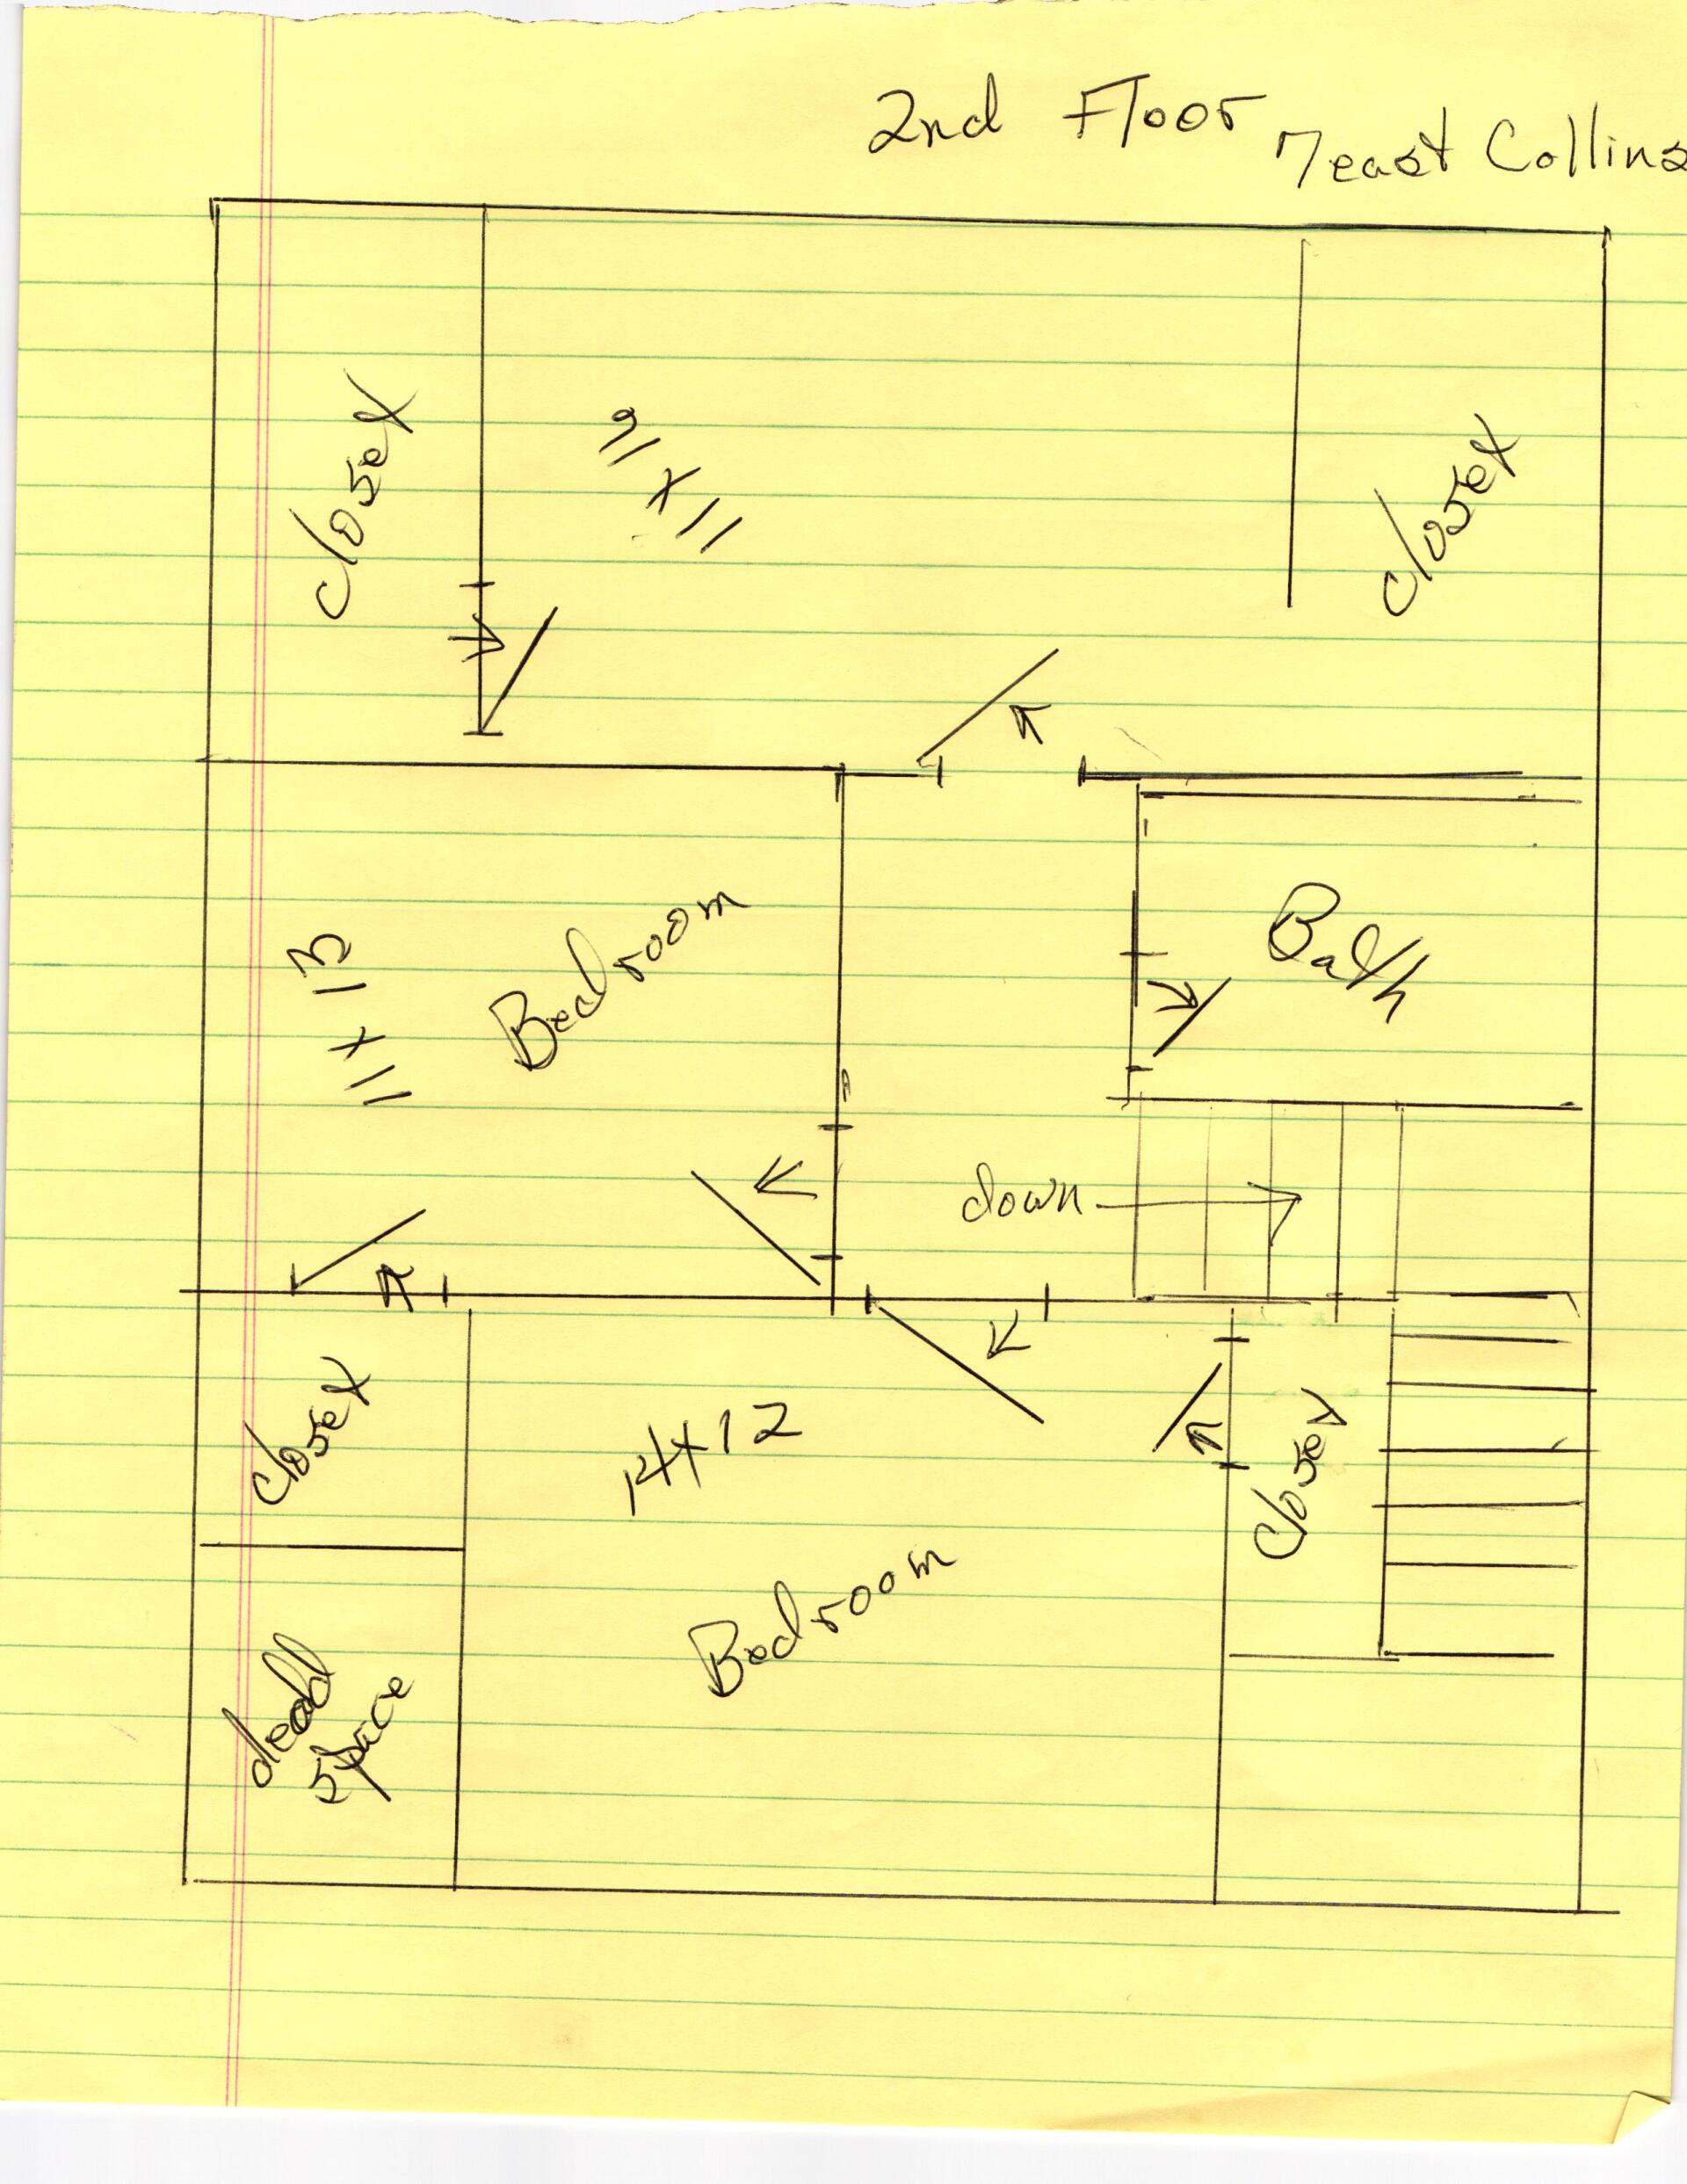 2nd Floor 7 east Collins
closet
11 x 16
closet
11 x 13
Bedroom
Bath
down
closet
14x12
closet
Bedroom
dead
space